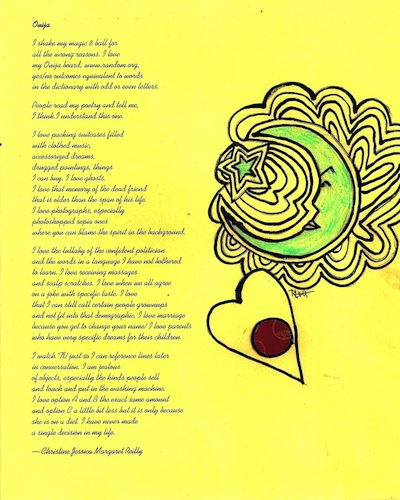 Ouija
I shake my magic 8 ball for
all the wrong reasons. I love
my Ouija board, www.random.org,
yes/no outcomes equivalent to words
in the dictionary with odd or even letters.
People read my poetry and tell me,
I think I understand this one.
I love packing suitcases filled
with clothed music,
accessorized dreams,
drugged paintings, things
I can buy. I love ghosts.
I love that memory of the dead friend
that is older than the span of his life.
I love photographs, especially
photoshopped sepia ones
where you can blame the spirit in the background.
I love the lullaby of the confident politician
and the words in a language I have not bothered
to learn. I love receiving massages
and scalp scratches. I love when we all agree
on a joke with specific taste. I love
that I can still call certain people grownups
and not fit into that demographic. I love marriage
because you get to change your name! I love parents
who have very specific dreams for their children.
I watch TV just so I can reference lines later
in conversation. I am jealous
of objects, especially the kinds people sell
and touch and put in the washing machine.
I love option A and B the exact same amount
and option C a little bit less but it is only because
she is on a diet. I have never made
a single decision in my life.
—Christine Jessica Margaret Reilly